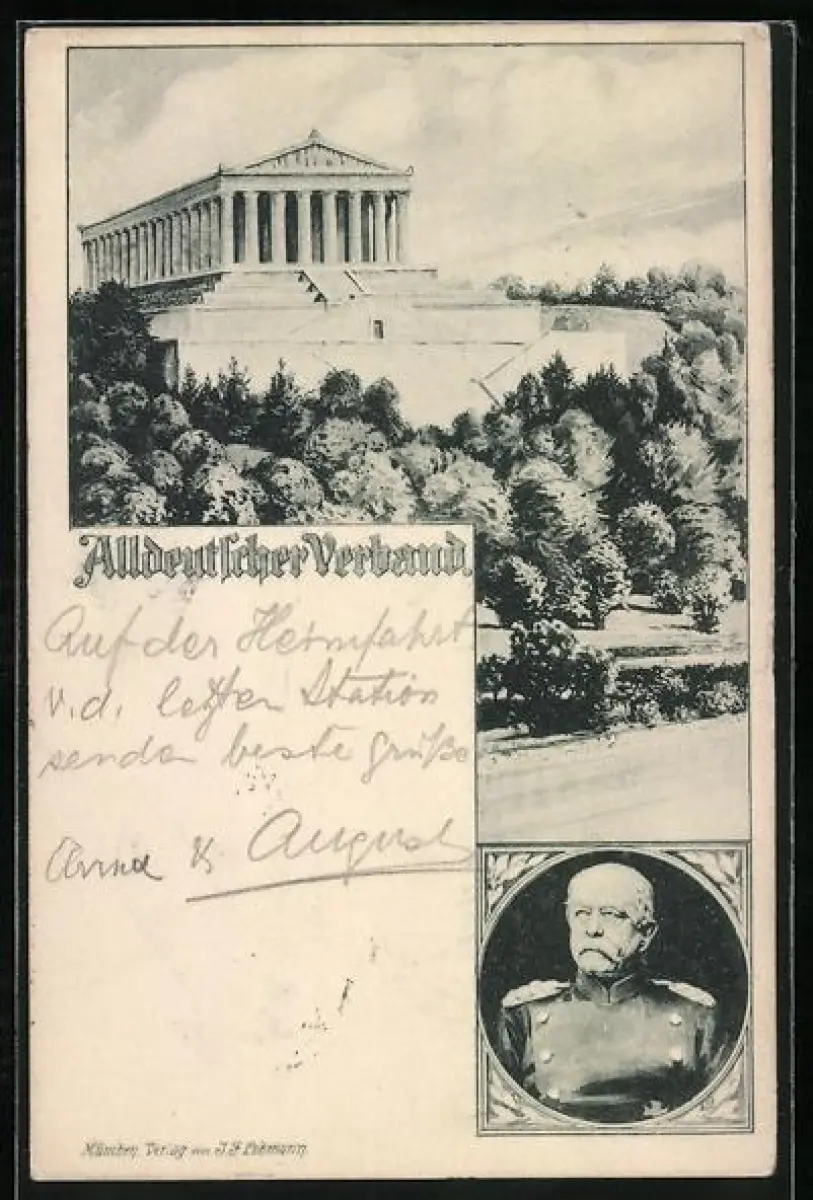 Alldeutscher Verband.
Auf der Heimfahrt
v. d. letzten Station
senden beste Grüße
Anna & August
München, Verlag von J. F. Lehmann.